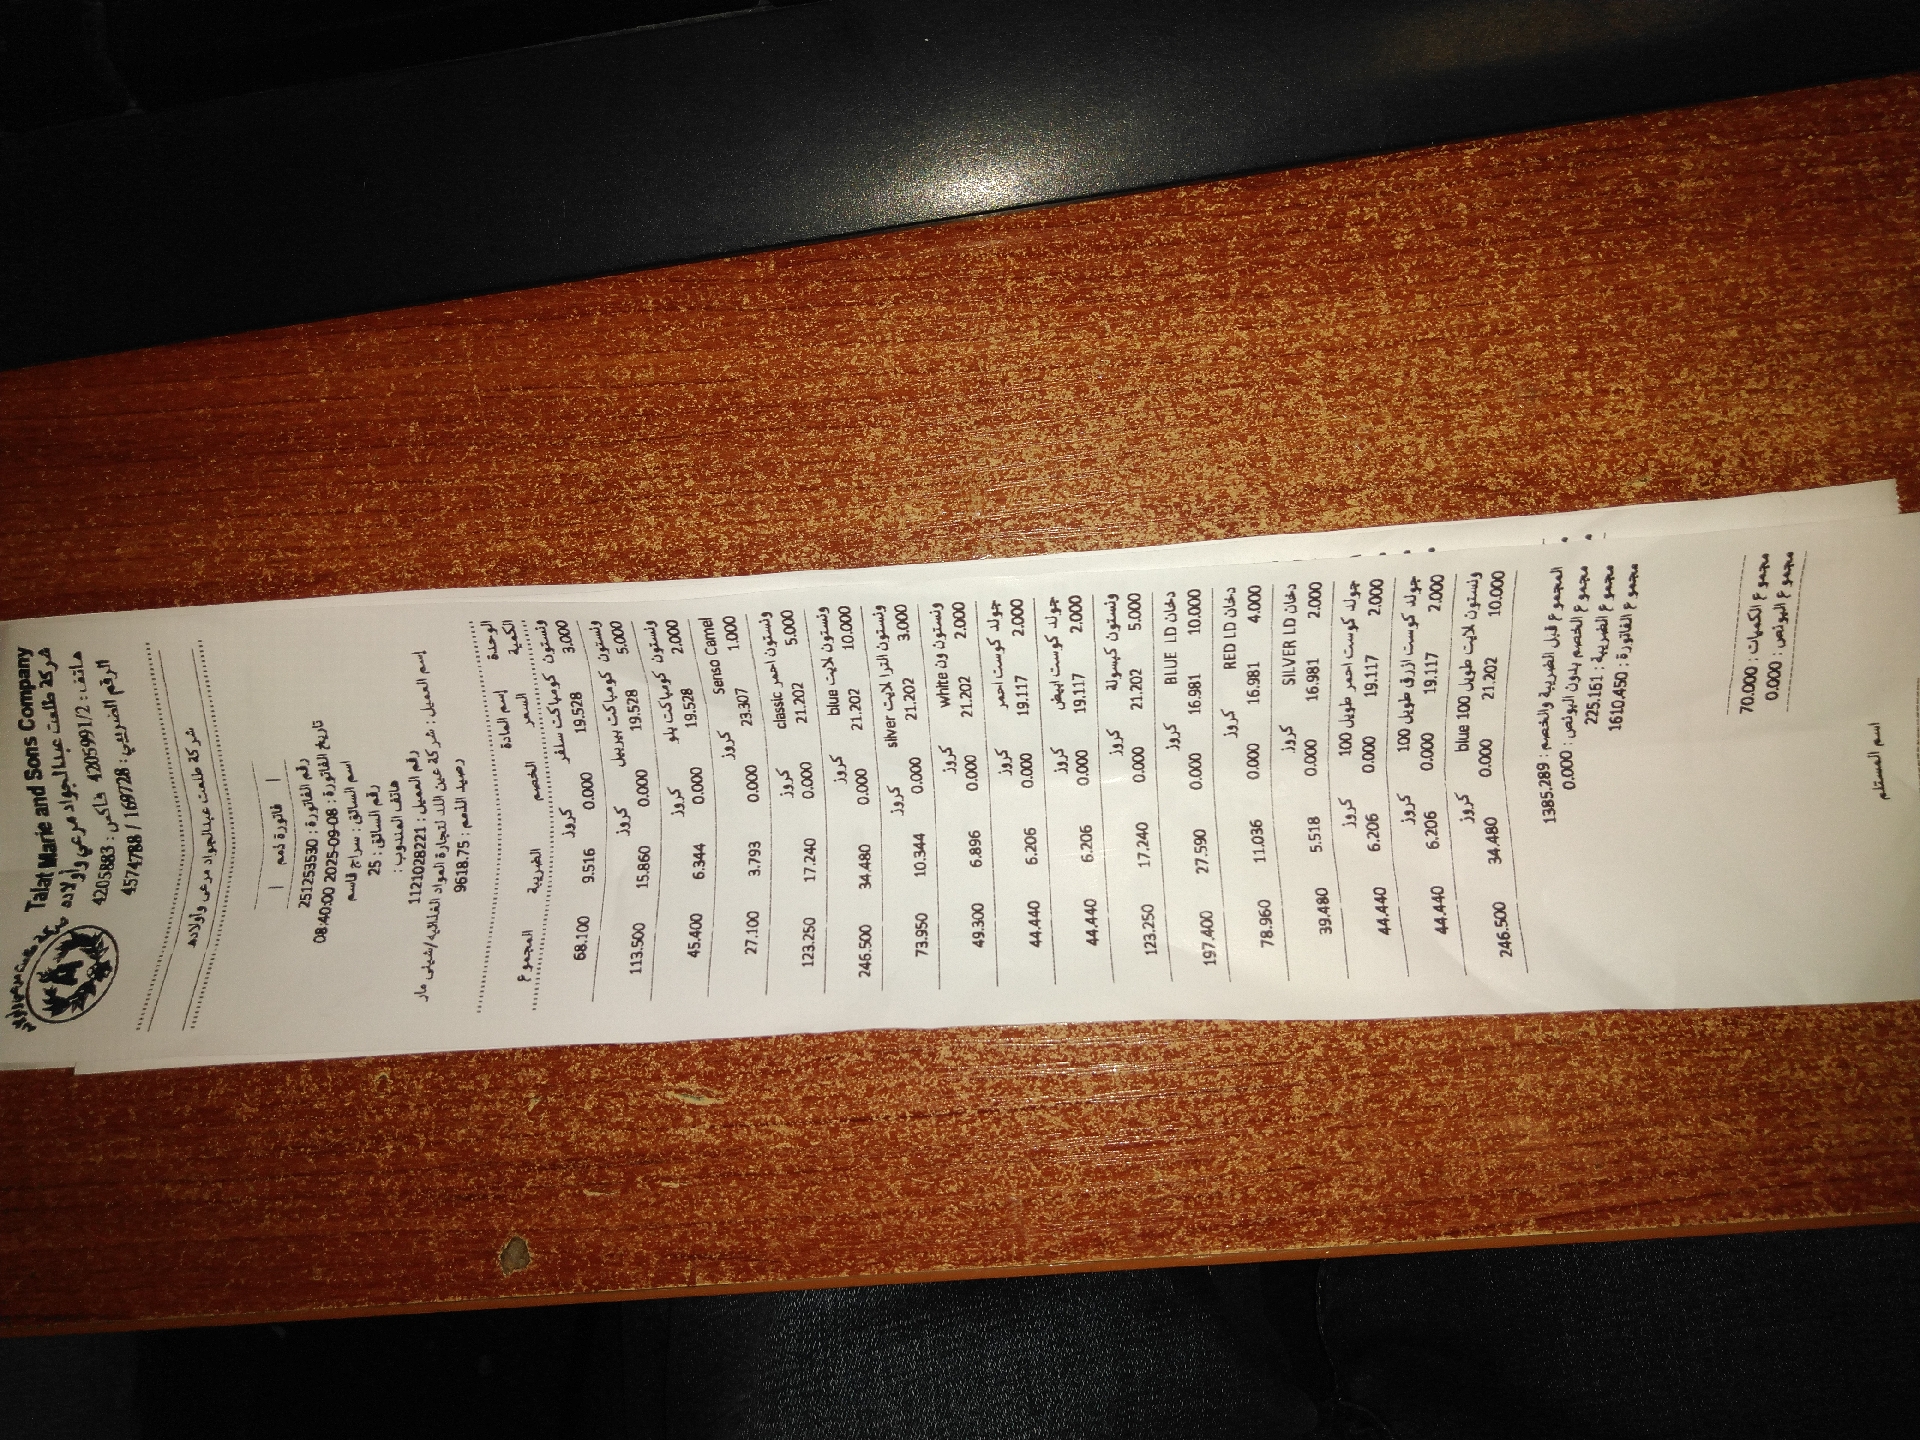 Talat Marie and Sons Company
شركة طلعت عبدالجواد مرعي وأولاده
هاتف : 4205991/2 فاكس : 4205883
الرقم الضريبي : 169728 / 4574788
شركة طلعت عبدالجواد مرعي وأولاده
| فاتورة ذمم |
رقم الفاتورة : 251253530
تاريخ الفاتورة : 2025-09-08 08:40:00
اسم السائق : سراج قاسم
رقم السائق : 25
هاتف المندوب :
رقم العميل : 1121028221
إسم العميل : شركة عين اللد لتجارة المواد الغذائيه/شيلي مار
رصيد الذمم : 9618.75
الوحدة إسم المادة
الكمية السعر الخصم الضريبة المجموع
ونستون كومباكت سلفر كروز
3.000 19.528 0.000 9.516 68.100
ونستون كومباكت بيربيل كروز
5.000 19.528 0.000 15.860 113.500
ونستون كومباكت بلو كروز
2.000 19.528 0.000 6.344 45.400
Senso Camel كروز
1.000 23.307 0.000 3.793 27.100
ونستون احمر classic كروز
5.000 21.202 0.000 17.240 123.250
ونستون لايت blue كروز
10.000 21.202 0.000 34.480 246.500
ونستون الترا لايت silver كروز
3.000 21.202 0.000 10.344 73.950
ونستون ون white كروز
2.000 21.202 0.000 6.896 49.300
جولد كوست احمر كروز
2.000 19.117 0.000 6.206 44.440
جولد كوست ابيض كروز
2.000 19.117 0.000 6.206 44.440
ونستون كبسولة كروز
5.000 21.202 0.000 17.240 123.250
دخان BLUE LD كروز
10.000 16.981 0.000 27.590 197.400
دخان RED LD كروز
4.000 16.981 0.000 11.036 78.960
دخان SILVER LD كروز
2.000 16.981 0.000 5.518 39.480
جولد كوست احمر طويل 100 كروز
2.000 19.117 0.000 6.206 44.440
جولد كوست ازرق طويل 100 كروز
2.000 19.117 0.000 6.206 44.440
ونستون لايت طويل blue 100 كروز
10.000 21.202 0.000 34.480 246.500
المجموع قبل الضريبة والخصم : 1385.289
مجموع الخصم بدون البونص : 0.000
مجموع الضريبة : 225.161
مجموع الفاتورة : 1610.450
مجموع الكميات : 70.000
مجموع البونص : 0.000
اسم المستلم